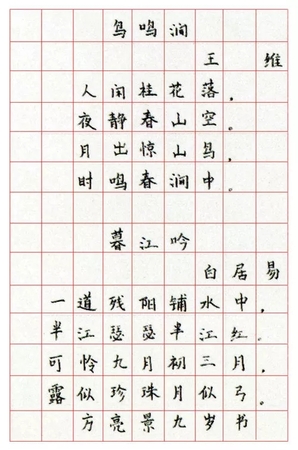 鸟鸣涧
王维
人闲桂花落，
夜静春山空。
月出惊山鸟，
时鸣春涧中。
暮江吟
白居易
一道残阳铺水中，
半江瑟瑟半江红。
可怜九月初三月，
露似珍珠月似弓。
方亮景九岁书